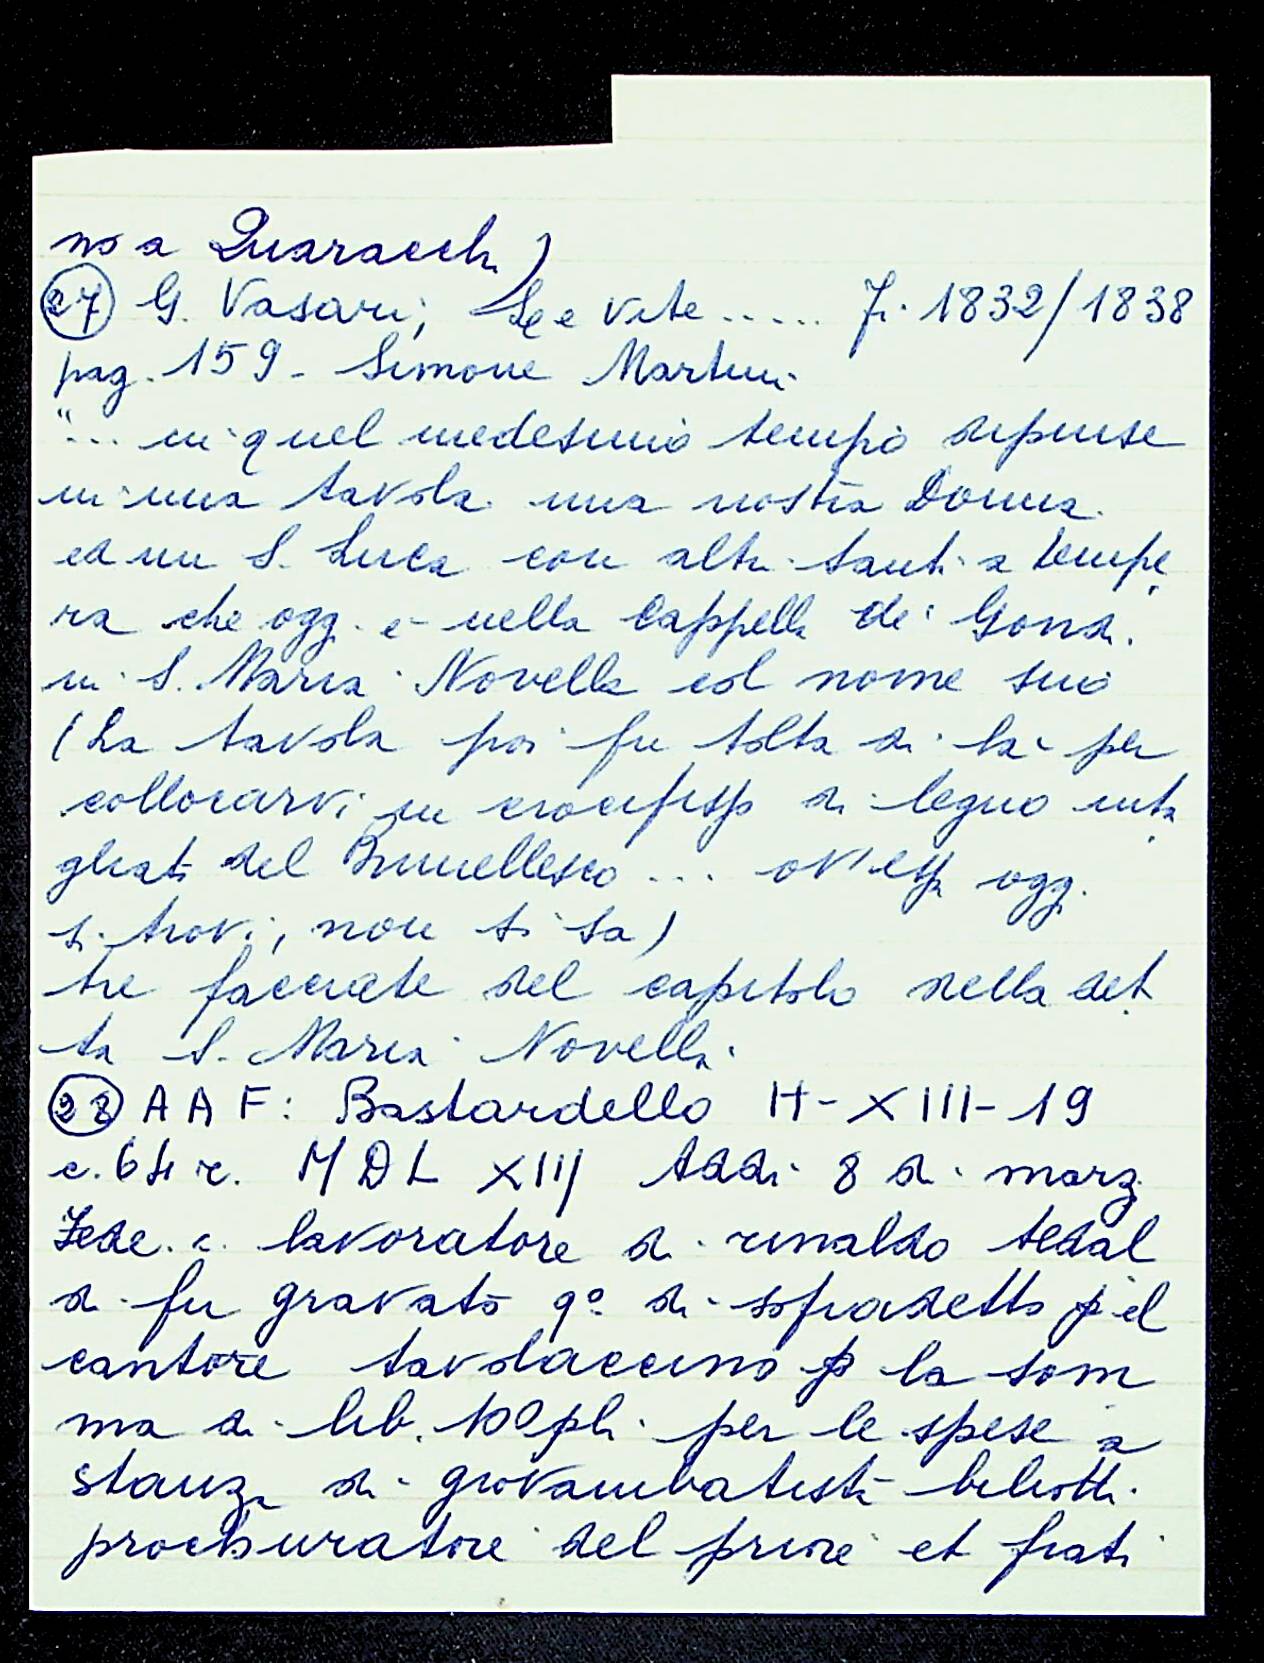 no a Quaracchi)
27 G. Vasari; Le Vite ..... Fi. 1832/1838
pag. 159 - Simone Martini
"... in quel medesimo tempo dipinse
in una tavola una nostra Donna
ed un S. Luca con altri santi a tempe
ra che oggi è nella Cappella de' Gondi
in S. Maria Novella col nome suo
(La tavola poi fu tolta di là per
collocarvi un crocifisso di legno inta
gliato del Brunellesco ... ov'essa oggi
si trovi, non si sa)
tre facciate del capitolo nella det
ta S. Maria Novella
28 AAF: Bastardello H-XIII-19
c. 64 r. MDLXIII Addi 8 di marzo
lavoratore di rinaldo tedal
di fu gravato qº di sopradetto p el
cantore tavolaccino p la som
ma di lib. 100 pli per le spese a
stanza di giovambatista biliotti
prochuratore del priore et frati